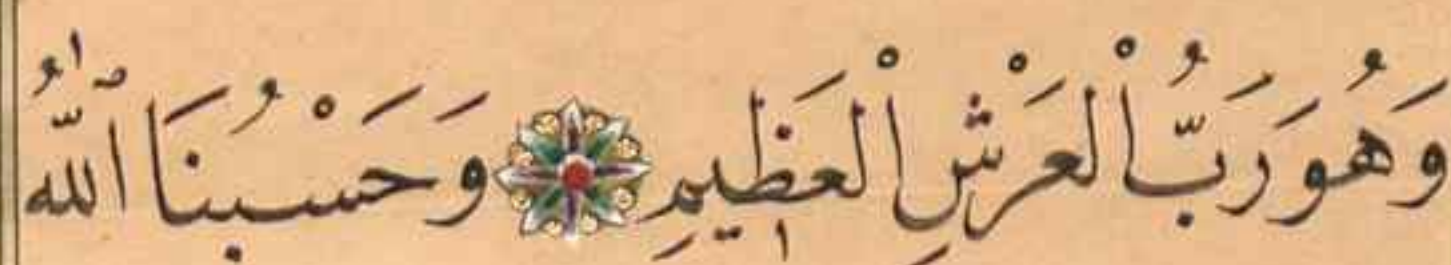 وَهُوَ رَبُّ الْعَرْشِ الْعَظِيمِ وَحَسْبُنَا ٱللّٰهُ